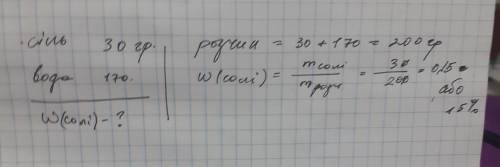 сіль 30 гр.
вода 170.
W(солі) - ?
розчин = 30 + 170 = 200 гр
W(солі) = mсолі / mрозч = 30 / 200 = 0,15
або
15%